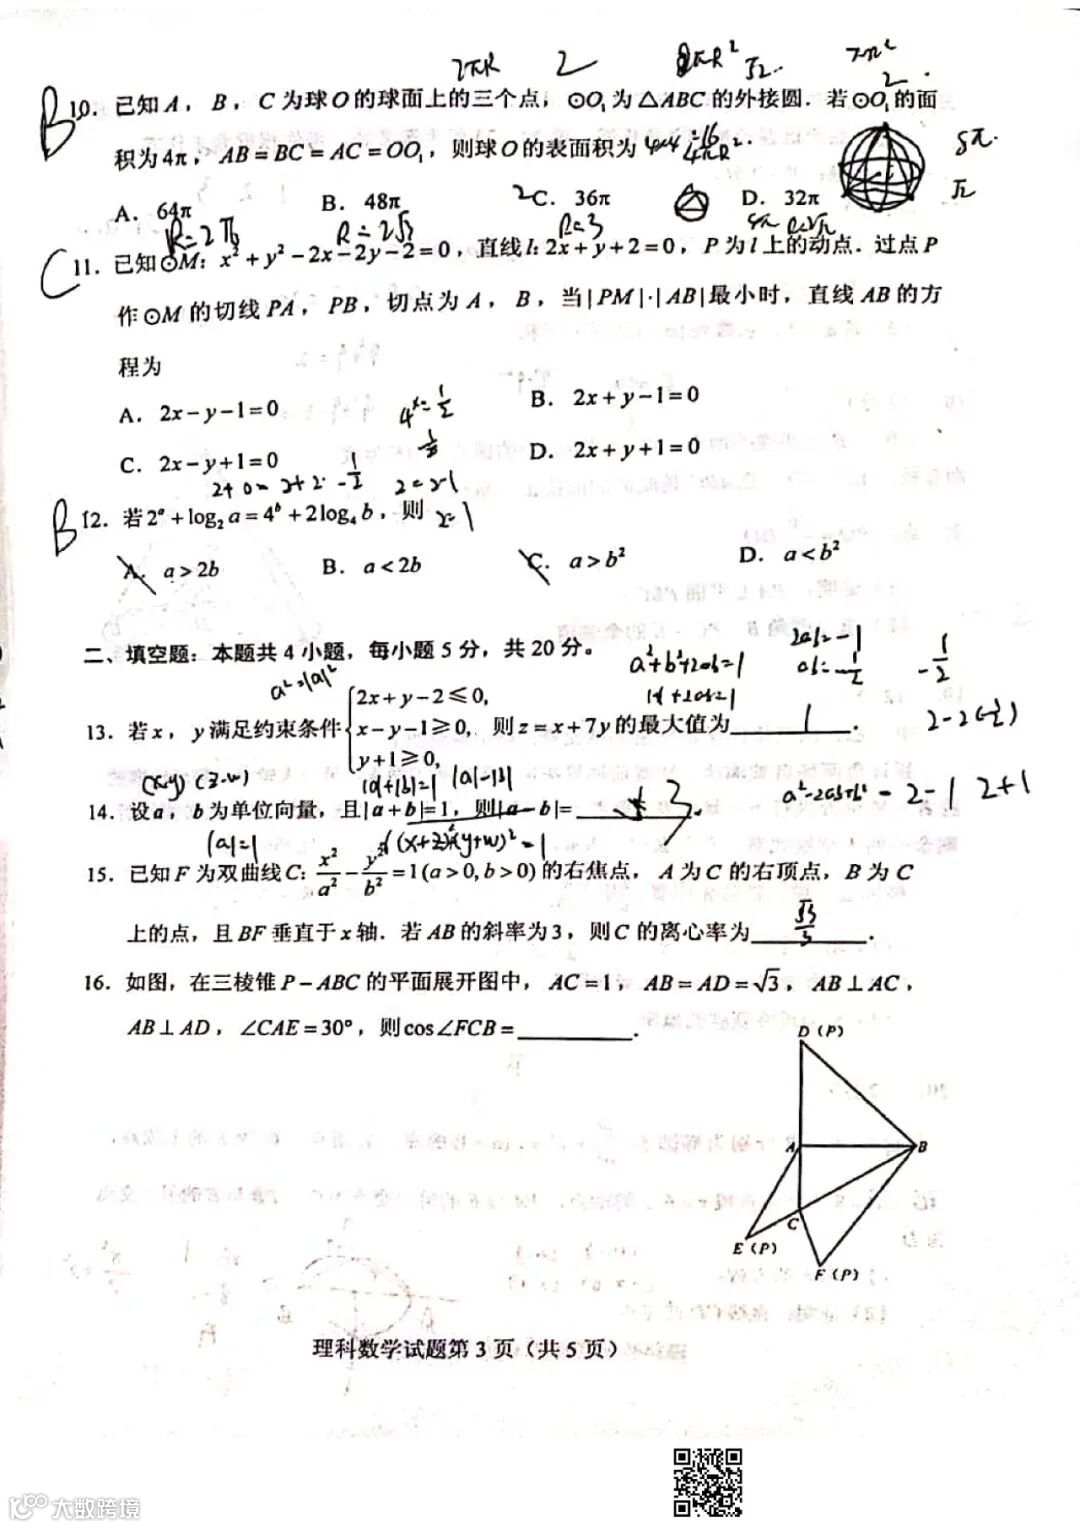 2πR 2 8πR² √2. 7π²
B 10. 已知A，B，C为球O的球面上的三个点，⊙O₁为△ABC的外接圆．若⊙O₁的面
积为4π，AB=BC=AC=OO₁，则球O的表面积为 4πR². 8π.
A. 64π B. 48π C. 36π D. 32π √2
R=2√3 R=3
C 11. 已知⊙M：x²+y²−2x−2y−2=0，直线l：2x+y+2=0，P为l上的动点．过点P
作⊙M的切线PA，PB，切点为A，B，当|PM|·|AB|最小时，直线AB的方
程为
A. 2x−y−1=0 B. 2x+y−1=0
C. 2x−y+1=0 D. 2x+y+1=0
B 12. 若2ᵃ+log₂a=4ᵇ+2log₄b，则
A. a>2b B. a<2b C. a>b² D. a<b²
二、填空题：本题共4小题，每小题5分，共20分。
a²=|a|² a²+b²+2ab=1 2ab=-1
ab=-1/2 -1/2
13. 若x，y满足约束条件{2x+y−2≤0, x−y−1≥0, y+1≥0, 则z=x+7y的最大值为 1 . 2-2(-1/2)
(x,y) (z,w) |a|+|b|=1 |a|-|b|
14. 设a，b为单位向量，且|a+b|=1，则|a−b|= 3 . a²-2ab+b² = 2-1 2+1
|a|=1 √(x+z)²+(y+w)²=1
15. 已知F为双曲线C：x²/a²−y²/b²=1(a>0,b>0)的右焦点，A为C的右顶点，B为C
上的点，且BF垂直于x轴．若AB的斜率为3，则C的离心率为 √3/3 .
16. 如图，在三棱锥P−ABC的平面展开图中，AC=1，AB=AD=√3，AB⊥AC，
AB⊥AD，∠CAE=30°，则cos∠FCB=________.
D (P)
A
B
C
E (P)
F (P)
理科数学试题第3页（共5页）
大数跨境